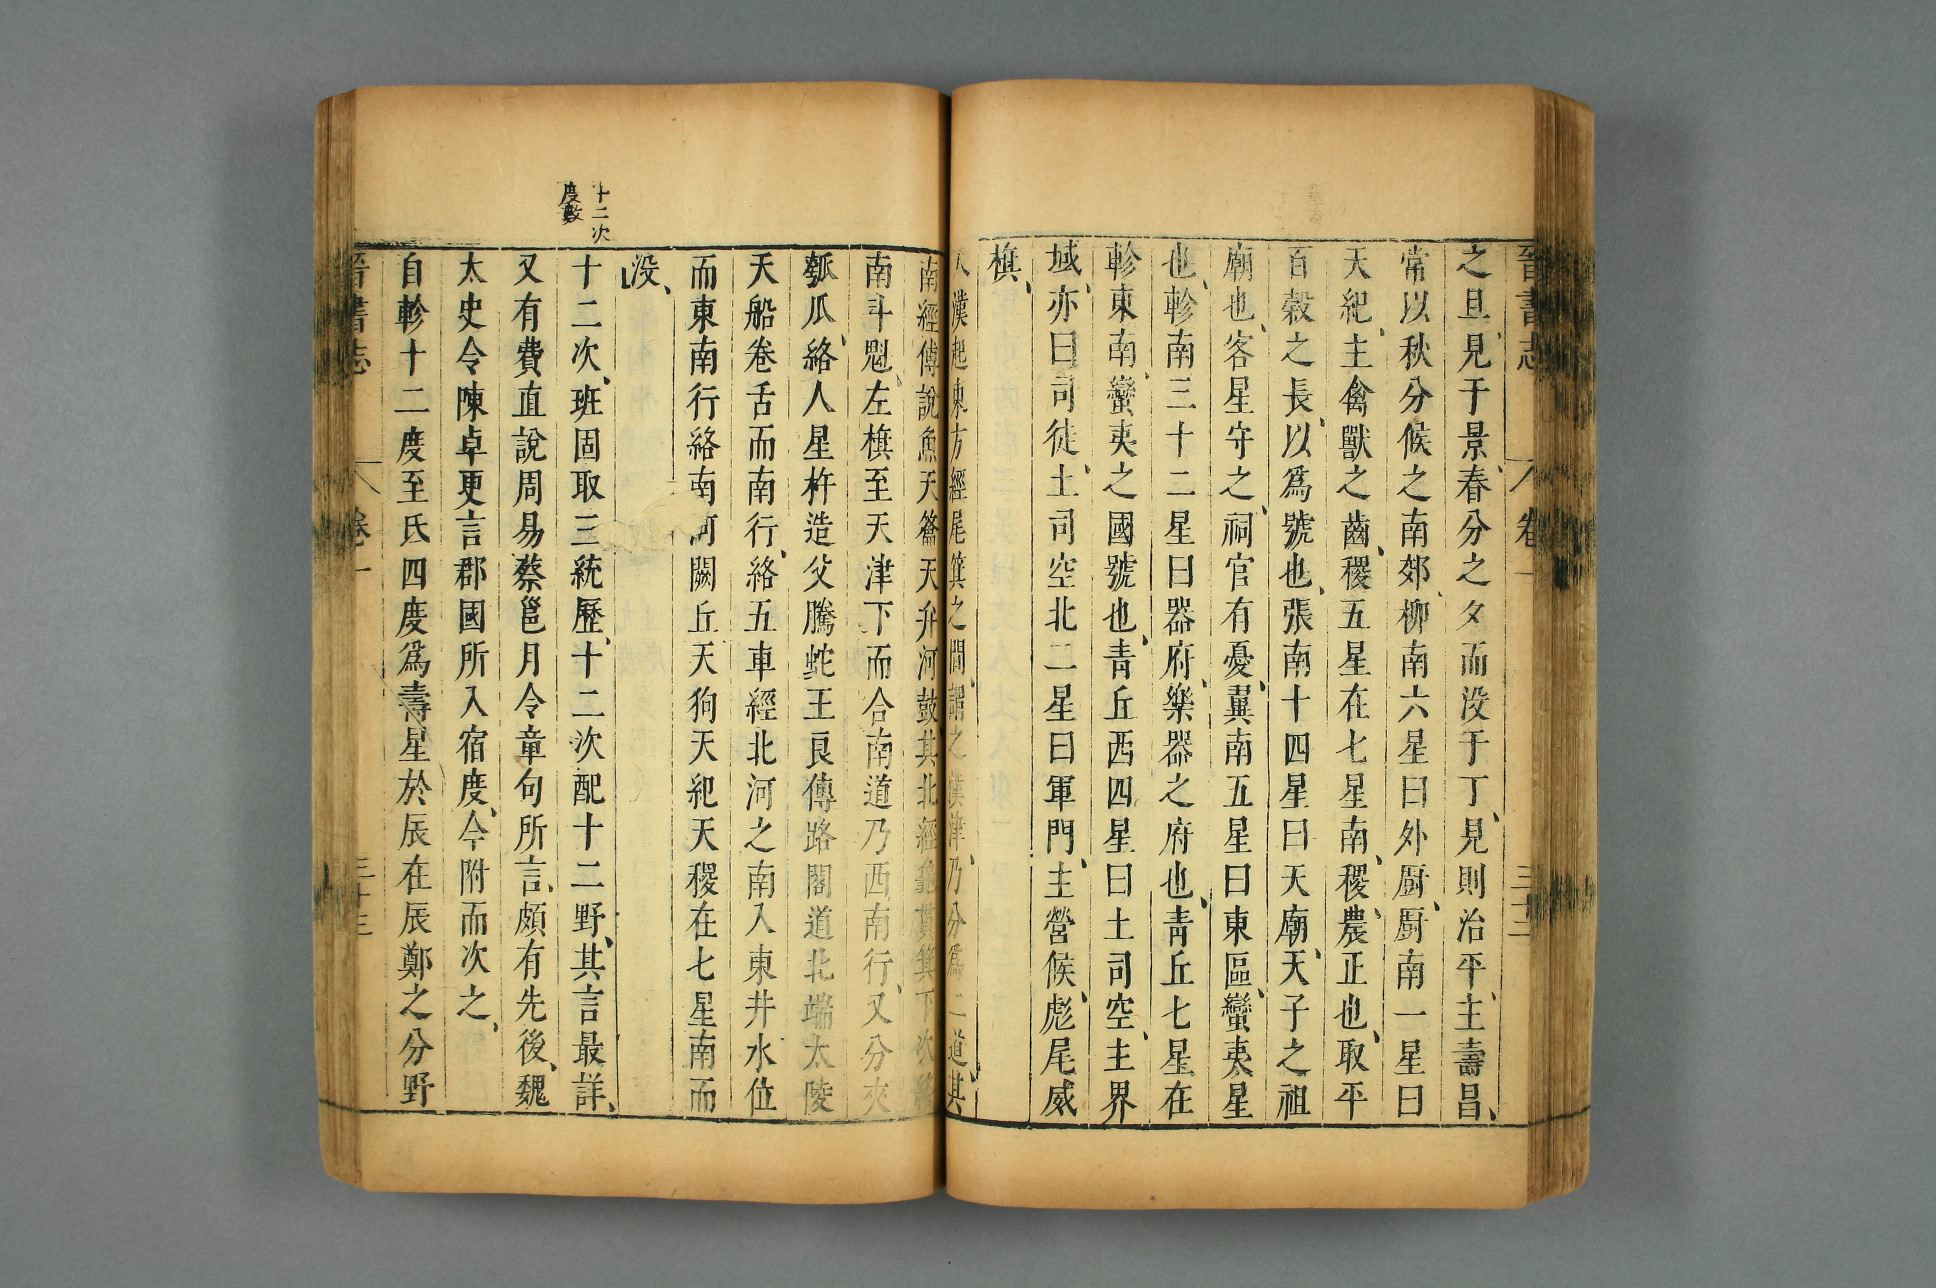 晉書志 卷一 三十二
之旦、見于景、春分之夕而没于丁、見則治平、主壽昌、
常以秋分候之南郊、柳南六星曰外厨、厨南一星曰
天紀、主禽獸之齒、稷五星在七星南、稷、農正也、取乎
百穀之長、以爲號也、張南十四星曰天廟、天子之祖
廟也、客星守之、祠官有憂、翼南五星曰東區、蠻夷星
也、軫南三十二星曰器府、樂器之府也、青丘七星在
軫東南、蠻夷之國號也、青丘西四星曰土司空、主界
域、亦曰司徒、土司空北二星曰軍門、主營候、彪尾威
旗、
天漢起東方經尾箕之間、謂之漢津、乃分爲二道、其
南經傅說魚天籥天弁河鼓、其北經龜貫箕下次絡
南斗魁、左旗至天津下而合南道乃西南行、又分夾
瓠瓜、絡人星杵造父騰蛇王良傅路閣道北端太陵
天船卷舌而南行、絡五車經北河之南入東井水位
而東南行絡南河闕丘天狗天紀天稷在七星南而
没、
十二次
度數
十二次、班固取三統歷、十二次配十二野、其言最詳、
又有費直說周易蔡邕月令章句所言、頗有先後、魏
太史令陳卓更言郡國所入宿度、今附而次之、
自軫十二度至氐四度爲壽星於辰在辰鄭之分野
晉書志 卷一 三十三